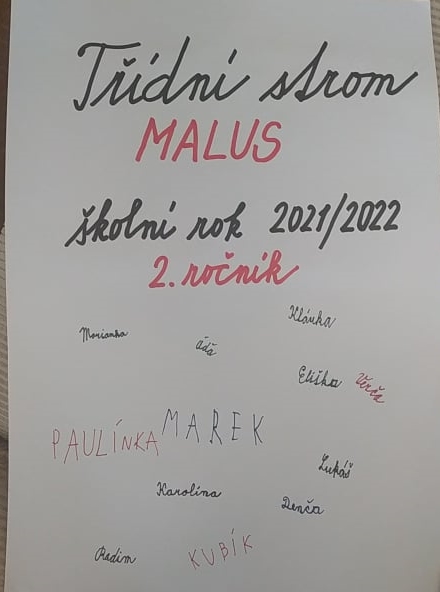 Třídní strom
MALUS
školní rok 2021/2022
2. ročník
Klárka
Marianka
Áďa
Eliška Verča
PAULÍNKA MAREK
Lukáš
Karolína
Denča
Radim
KUBÍK